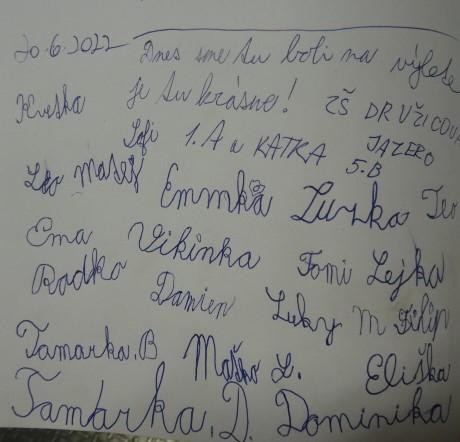 20.6.2022 Dnes sme tu boli na výlete
je tu krásne! ZŠ DRUŽICOVÁ
Sofi 1.A a KATKA JAZERO
5.B
Leo Matej Emmka Teo
Ema Vikinka Tomi Lejka
Radko Damien Luky M Filip
Tamarka.B Maťko L. Eliška
Tamarka.D. Dominika